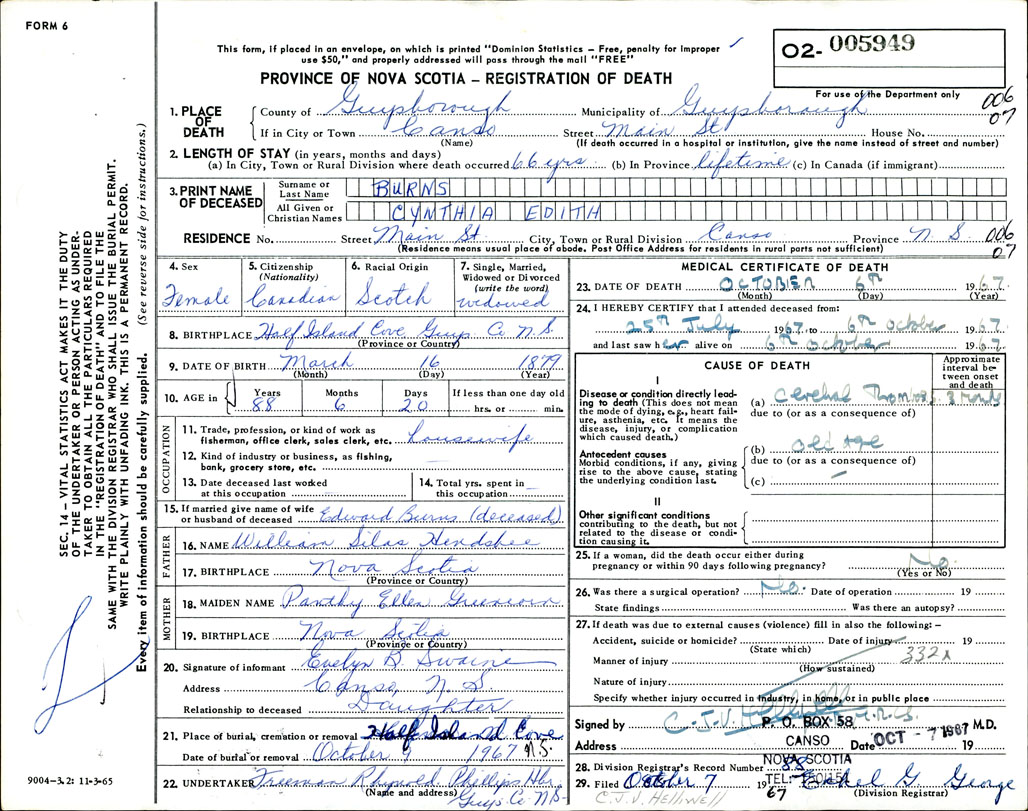 FORM 6
This form, if placed in an envelope, on which is printed "Dominion Statistics – Free, penalty for improper
use $50," and properly addressed will pass through the mail "FREE"
PROVINCE OF NOVA SCOTIA – REGISTRATION OF DEATH
O2- 005949
For use of the Department only
006
07
1. PLACE OF DEATH
County of Guysborough Municipality of Guysborough
If in City or Town Canso Street Main St House No.
(Name) (If death occurred in a hospital or institution, give the name instead of street and number)
2. LENGTH OF STAY (in years, months and days)
(a) In City, Town or Rural Division where death occurred 66 yrs (b) In Province lifetime (c) In Canada (if immigrant)
3. PRINT NAME OF DECEASED
Surname or Last Name BURNS
All Given or Christian Names CYNTHIA EDITH
RESIDENCE No. Street Main St City, Town or Rural Division Canso Province N.S. 006
07
(Residence means usual place of abode. Post Office Address for residents in rural parts not sufficient)
4. Sex
Female
5. Citizenship (Nationality)
Canadian
6. Racial Origin
Scotch
7. Single, Married, Widowed or Divorced (write the word)
widowed
8. BIRTHPLACE Half Island Cove Guys. Co N.S.
(Province or Country)
9. DATE OF BIRTH March 16 1879
(Month) (Day) (Year)
10. AGE in Years Months Days If less than one day old
88 6 20 hrs. or min.
OCCUPATION
11. Trade, profession, or kind of work as fisherman, office clerk, sales clerk, etc. housewife
12. Kind of industry or business, as fishing, bank, grocery store, etc.
13. Date deceased last worked at this occupation
14. Total yrs. spent in this occupation
15. If married give name of wife or husband of deceased Edward Burns (deceased)
FATHER
16. NAME William Silas Hendsbee
17. BIRTHPLACE Nova Scotia
(Province or Country)
MOTHER
18. MAIDEN NAME Ellen
19. BIRTHPLACE Nova Scotia
(Province or Country)
20. Signature of informant Evelyn B. Swaine
Address Canso, N.S.
Relationship to deceased Daughter
21. Place of burial, cremation or removal Half Island Cove
Date of burial or removal October 9 1967 N.S.
22. UNDERTAKER Freeman Phillips Hbr.
(Name and address) Guys. Co N.S.
MEDICAL CERTIFICATE OF DEATH
23. DATE OF DEATH OCTOBER 6th 1967
(Month) (Day) (Year)
24. I HEREBY CERTIFY that I attended deceased from:
25th July 1967 to 6th October 1967
and last saw her alive on 6th October 1967
CAUSE OF DEATH
Approximate interval between onset and death
I
Disease or condition directly leading to death (This does not mean the mode of dying, e.g., heart failure, asthenia, etc. It means the disease, injury, or complication which caused death.)
(a) Cerebral Thrombosis
due to (or as a consequence of)
Antecedent causes
Morbid conditions, if any, giving rise to the above cause, stating the underlying condition last.
(b) old age
due to (or as a consequence of)
(c)
II
Other significant conditions
contributing to the death, but not related to the disease or condition causing it.
25. If a woman, did the death occur either during pregnancy or within 90 days following pregnancy? No
(Yes or No)
26. Was there a surgical operation? No. Date of operation 19
State findings Was there an autopsy?
27. If death was due to external causes (violence) fill in also the following:–
Accident, suicide or homicide? Date of injury 19
(State which)
332X
Manner of injury
(How sustained)
Nature of injury
Specify whether injury occurred in industry, in home, or in public place
Signed by C.J.V. Helliwell M.D.
P. O. BOX 58
CANSO
NOVA SCOTIA
Address Date OCT - 7 1967 19
28. Division Registrar's Record Number
29. Filed October 7 1967 Ethel G. George
(Division Registrar)
C.J.V. HELLIWELL
SEC. 14 – VITAL STATISTICS ACT MAKES IT THE DUTY
OF THE UNDERTAKER OR PERSON ACTING AS UNDER-
TAKER TO OBTAIN ALL THE PARTICULARS REQUIRED
IN THE "REGISTRATION OF DEATH" AND TO FILE THE
SAME WITH THE DIVISION REGISTRAR WHO SHALL ISSUE THE BURIAL PERMIT.
WRITE PLAINLY WITH UNFADING INK. THIS IS A PERMANENT RECORD.
Every item of information should be carefully supplied. (See reverse side for instructions.)
9004-3.2: 11-3-65